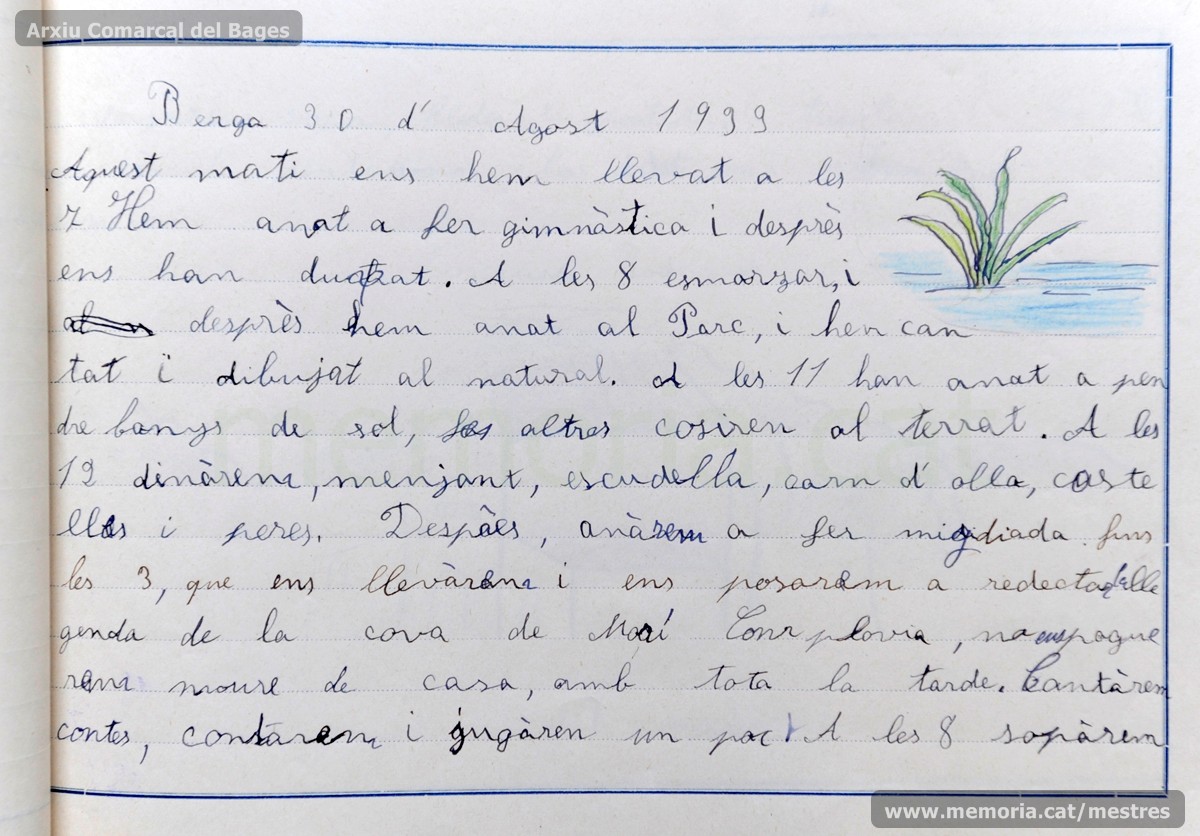 Arxiu Comarcal del Bages
Berga 30 d' Agost 1933
Aquest mati ens hem llevat a les
7 Hem anat a fer gimnàstica i desprès
ens han dutxat. A les 8 esmorzar, i
desprès hem anat al Parc, i hen can
tat i dibujat al natural. A les 11 han anat a pen
dre banys de sol, les altres cosiren al terrat. A les
12 dinàrem, menjant, escudella, carn d' olla, coste
lles i peres. Despès, anàrem a fer migdiada fins
les 3, que ens llevàrem i ens posarem a redectar lelle
genda de la cova de Marí Com plovia, no ens pogue
rem moure de casa, amb tota la tarde. Cantàrem
contes, contarem i jugàren un poc A les 8 sopàrem
memoria.cat
www.memoria.cat/mestres